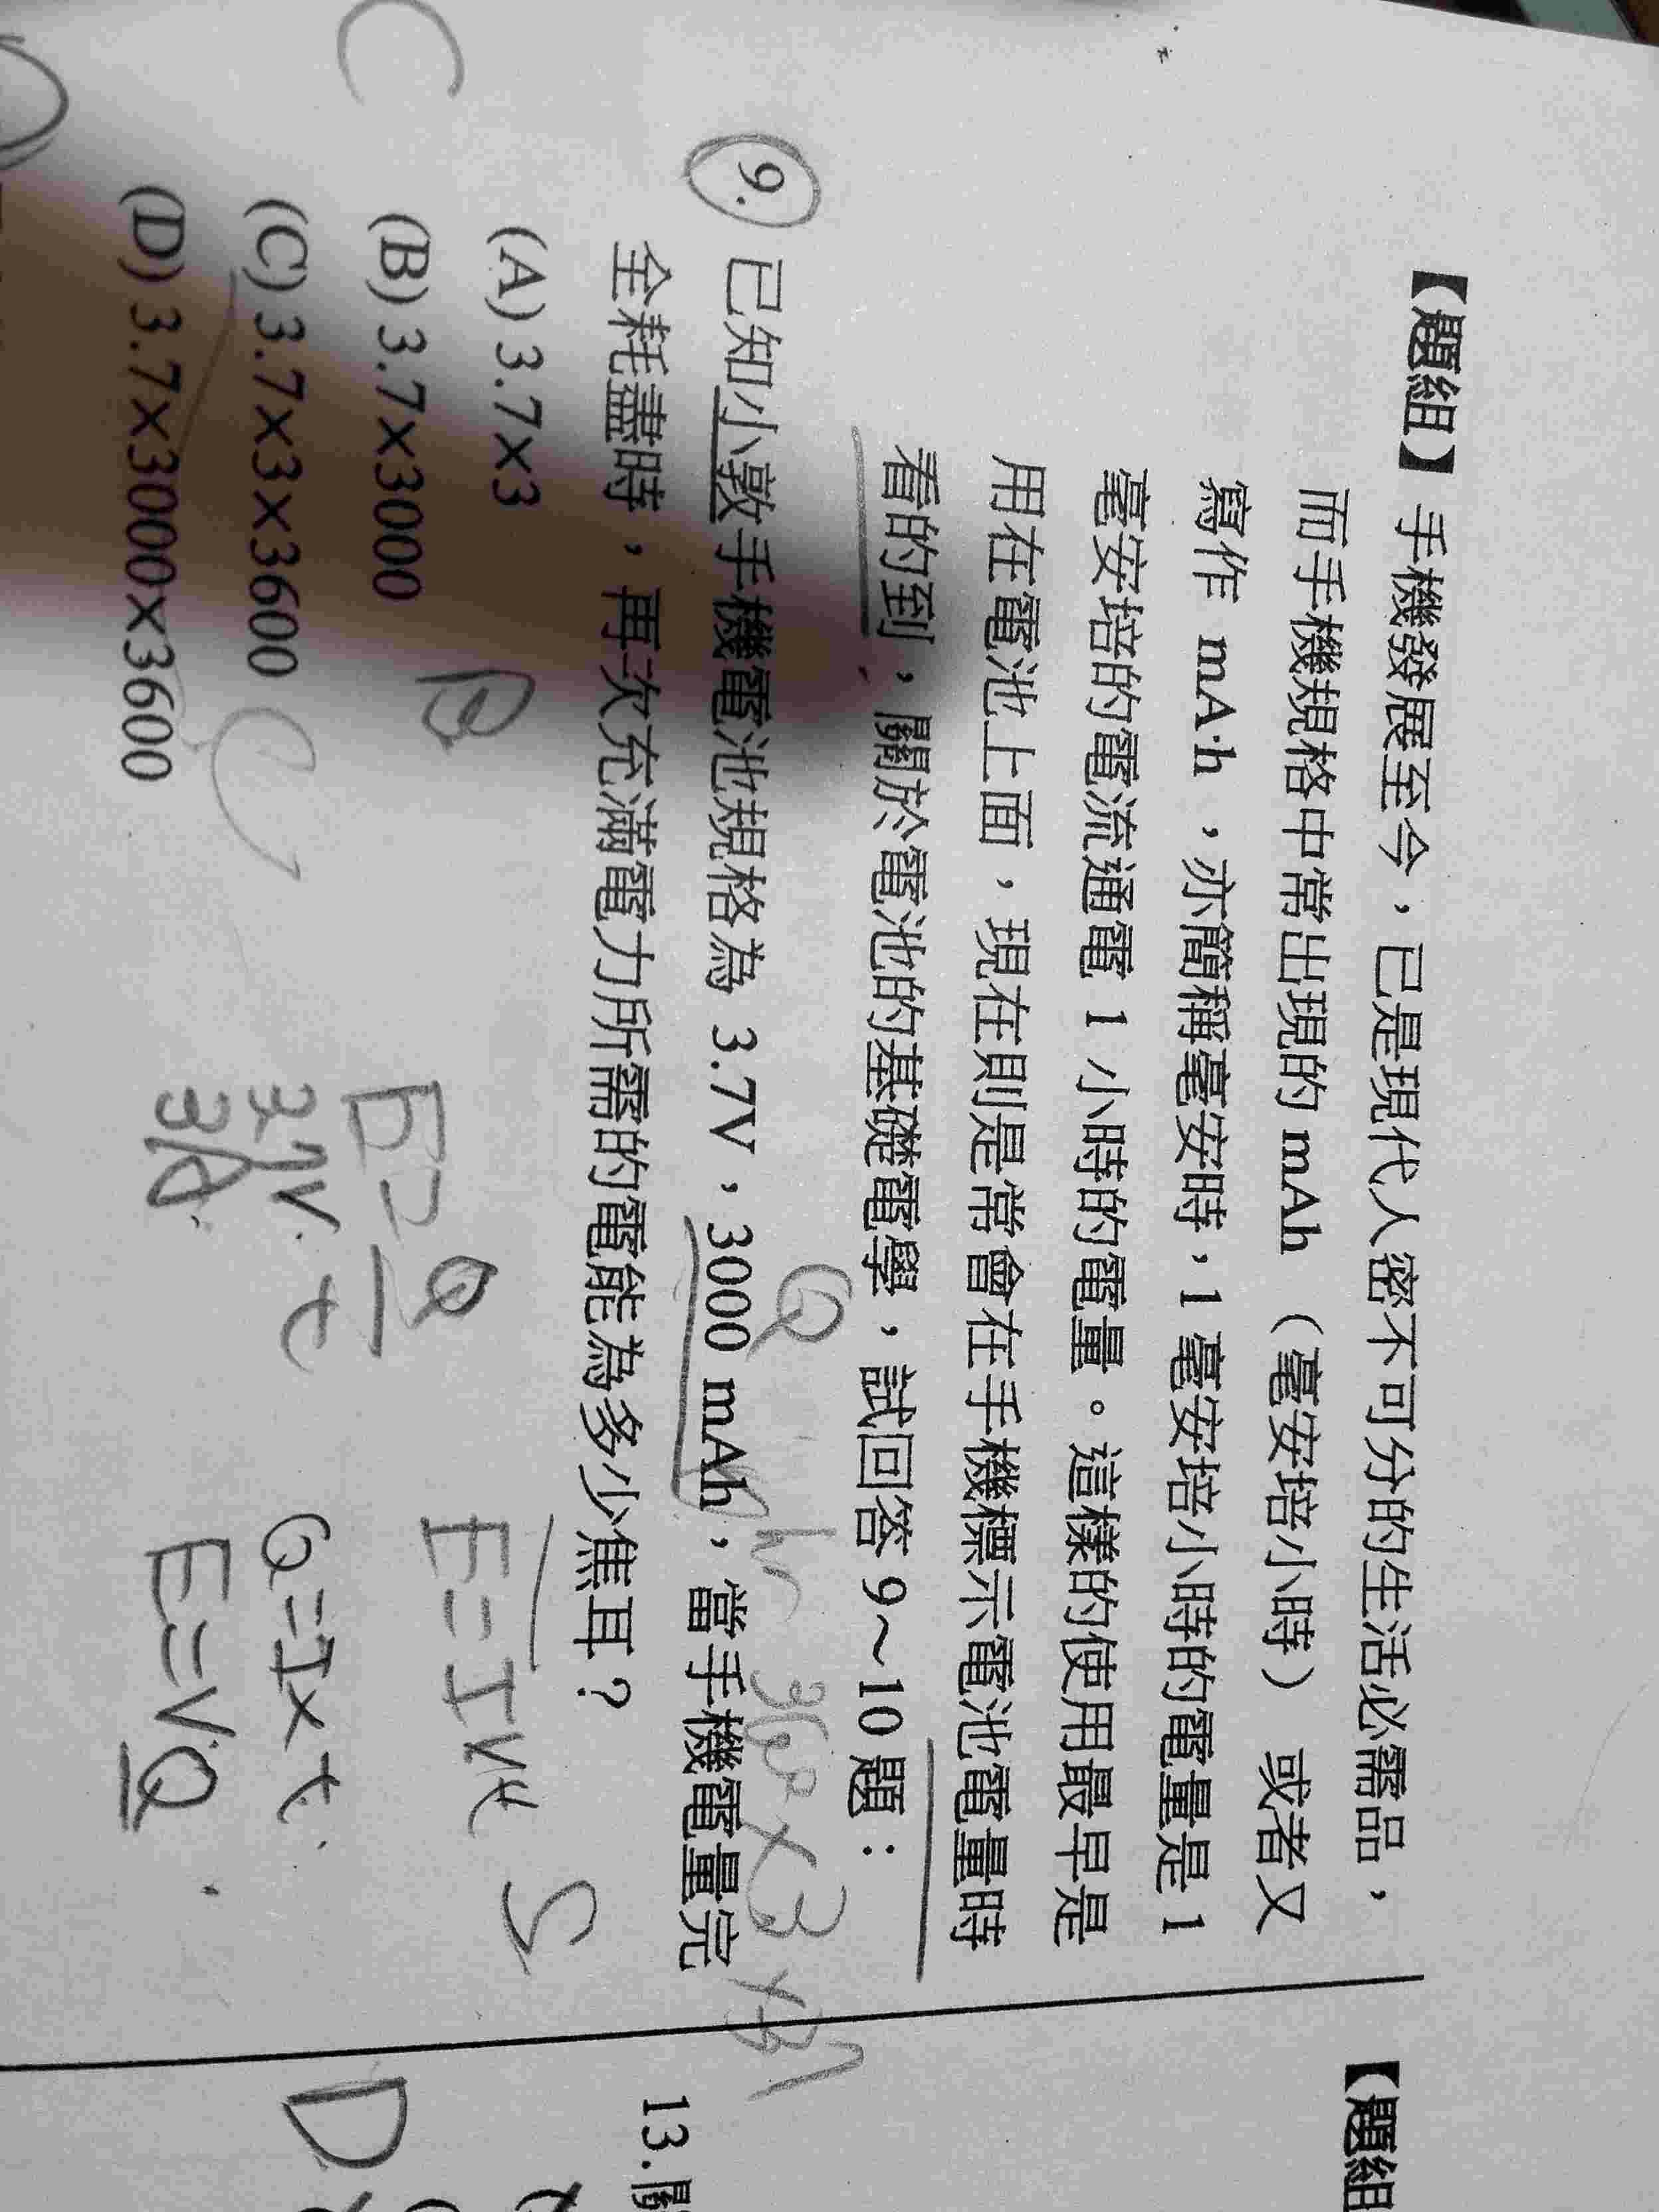 【題組】手機發展至今，已是現代人密不可分的生活必需品，
而手機規格中常出現的 mAh （毫安培小時） 或者又
寫作 mA·h ，亦簡稱毫安時，1 毫安培小時的電量是 1
毫安培的電流通電 1 小時的電量。這樣的使用最早是
用在電池上面，現在則是常會在手機標示電池電量時
看的到，關於電池的基礎電學，試回答 9～10 題：
Q
hr 3600×3×3.7
9. 已知小敦手機電池規格為 3.7V，3000 mAh，當手機電量完
全耗盡時，再次充滿電力所需的電能為多少焦耳？
(A) 3.7×3
(B) 3.7×3000
(C) 3.7×3×3600
(D) 3.7×3000×3600
C
B
E=IVt
Q=I×t
E=VQ
【題組
13.關
D